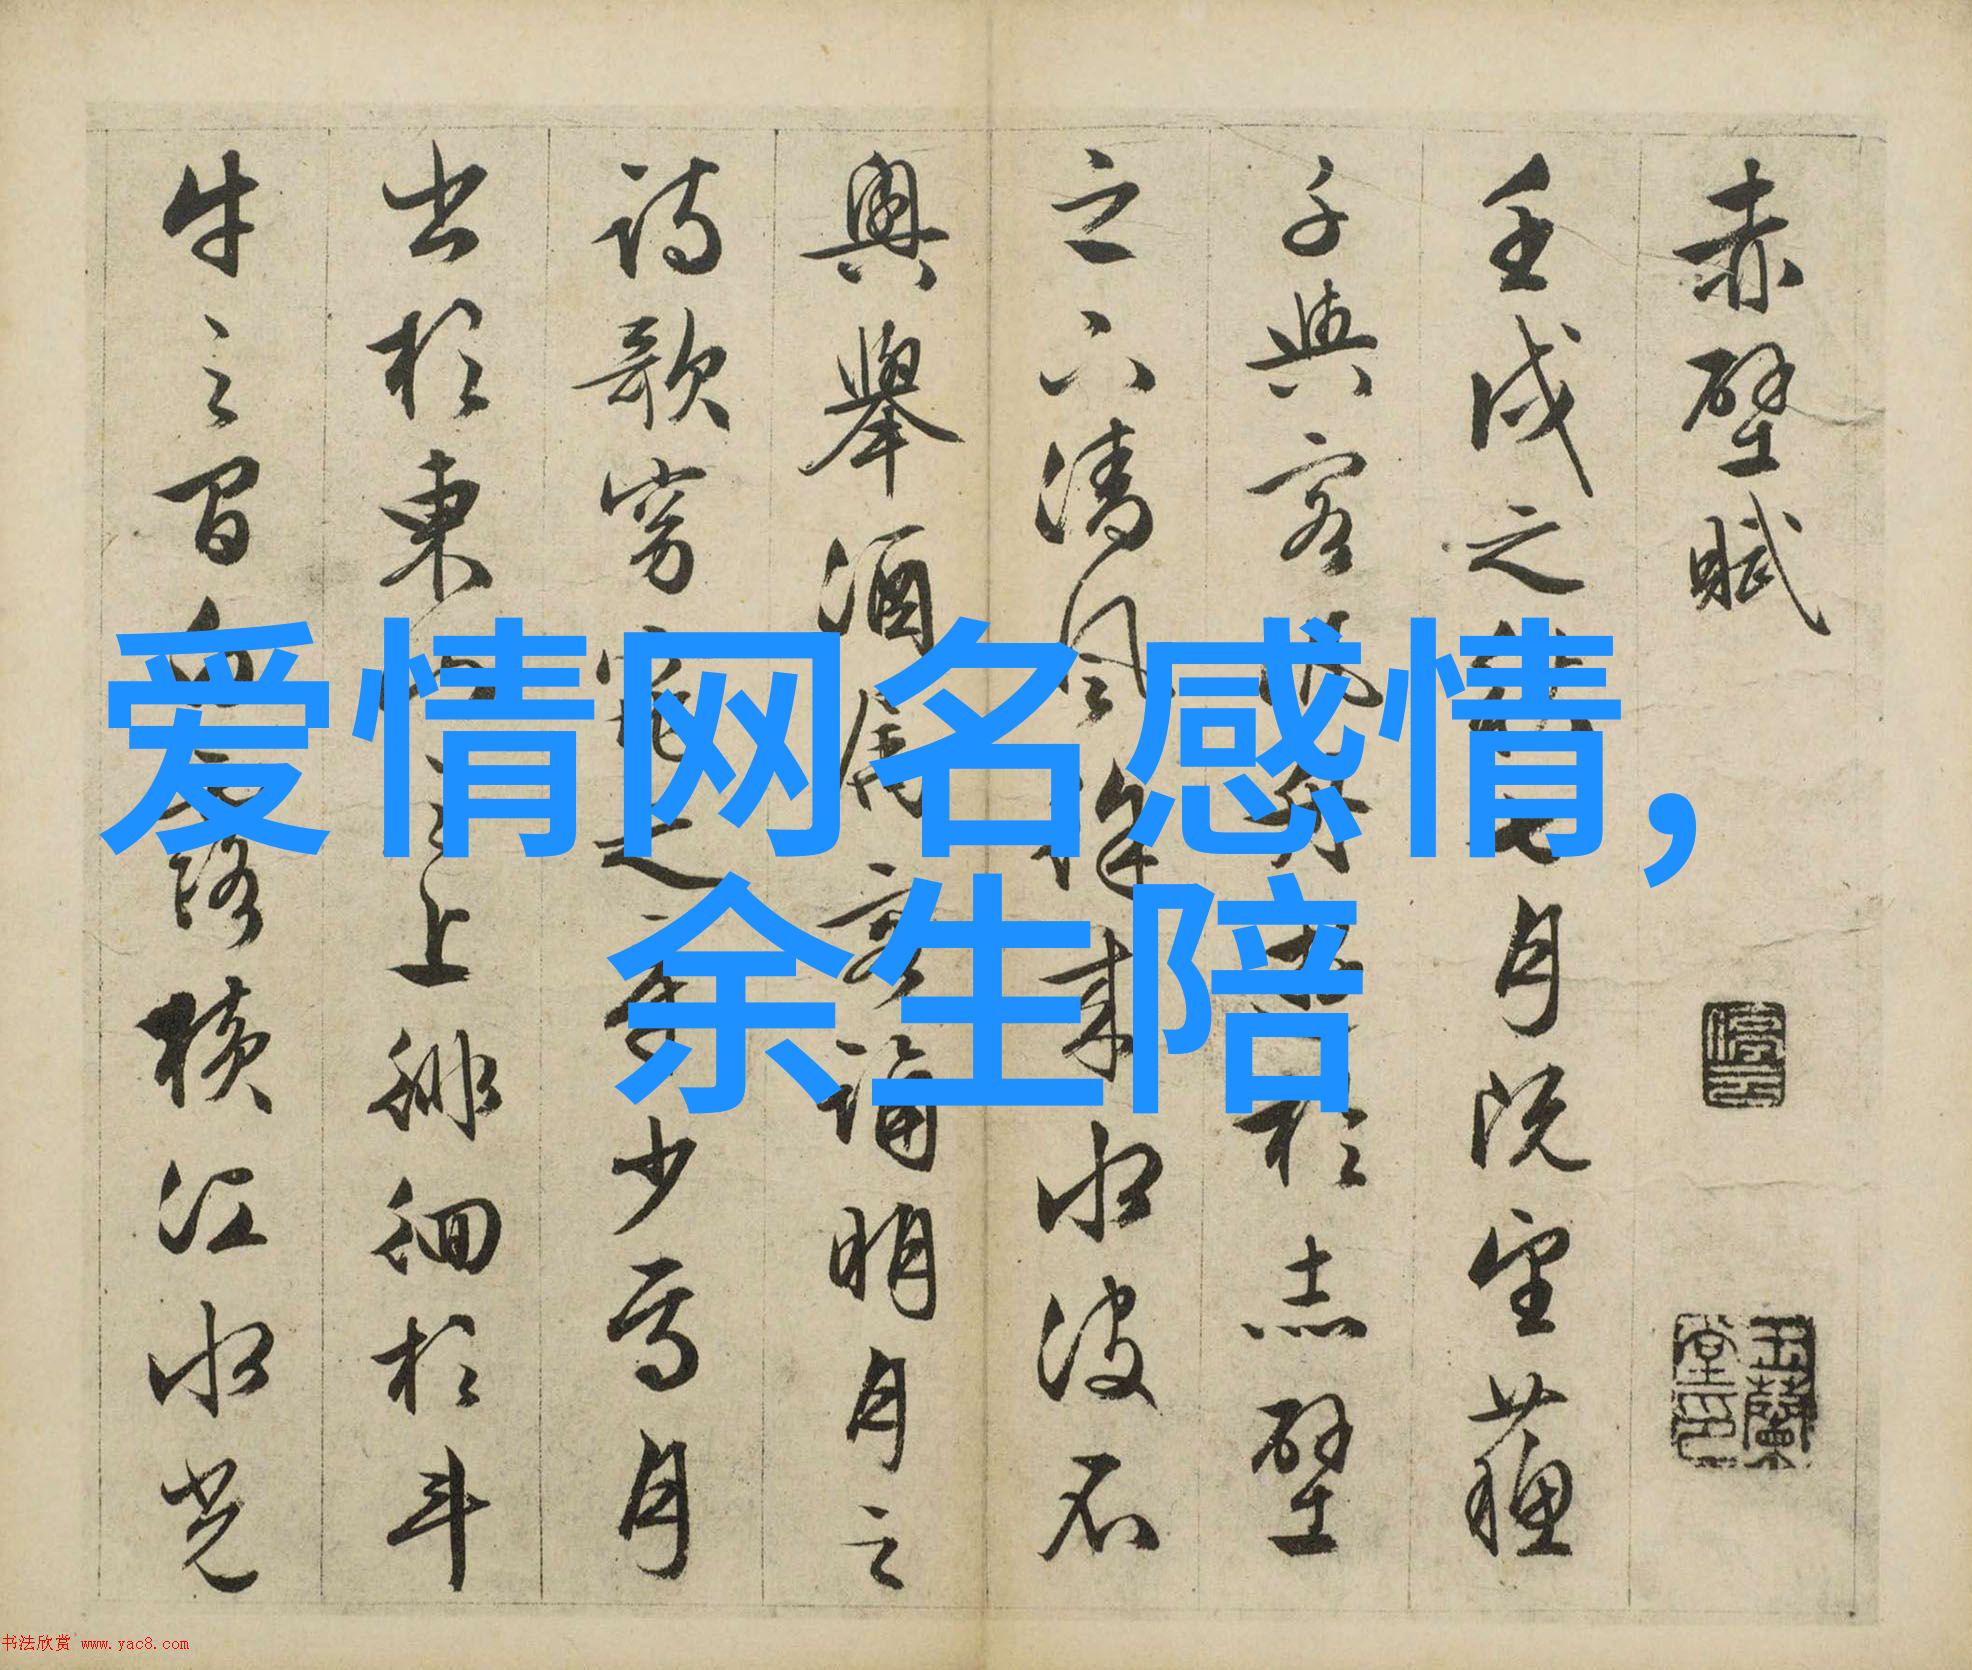 赤壁賦
壬戌之秋七月既望蘇
子與客泛舟遊於赤壁
之下清風徐來水波不
興舉酒屬客誦明月之
詩歌窈窕之章少焉月
出於東山之上徘徊於斗
牛之間白露橫江水光
停雲
玉蘭堂印
爱情网名感情,
余生陪
书法欣赏 www.yac8.com